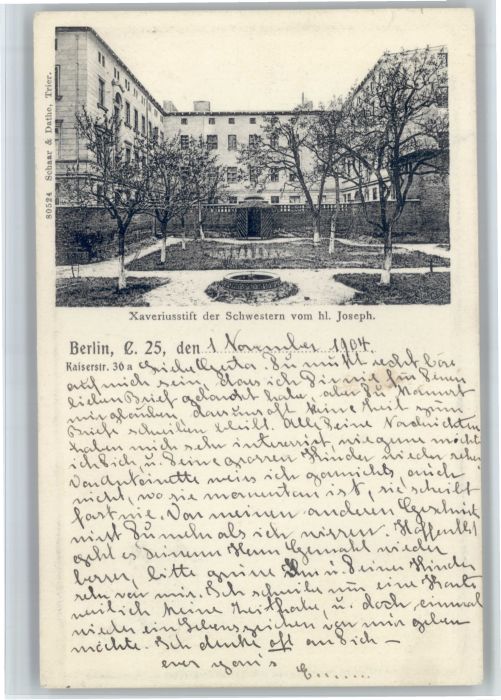 80524 Schaar & Dathe, Trier.
Xaveriusstift der Schwestern vom hl. Joseph.
Berlin, C. 25, den 1 November 1904.
Kaiserstr. 36a Du musst recht böse
auf mich sein, dass ich Dir nie für Deinen
lieben Brief gedankt habe, aber Du kannst
mir glauben, dass uns oft keine Zeit zum
Briefe schreiben bleibt. All Deine Nachrichten
haben mich sehr interessirt, wie gerne möchte
ich Dich, u. Deine grossen Kinder wieder sehen
Von Antoinette weiss ich garnichts, auch
nicht, wo sie momentan ist, sie schreibt
fast nie. Von meinen anderen Geschwister
wirst Du mehr als ich wissen. Hoffentlich
geht es Deinem Herrn Gemahl wieder
besser, bitte grüsse Ihn u Deinen Kinder
sehr von mir. Ich schreibe nur eine Karte
weil ich keine Zeit habe, u. doch einmal
wieder ein Lebenszeichen von mir geben
möchte. Ich denke oft an Dich –
ever yours
C.......